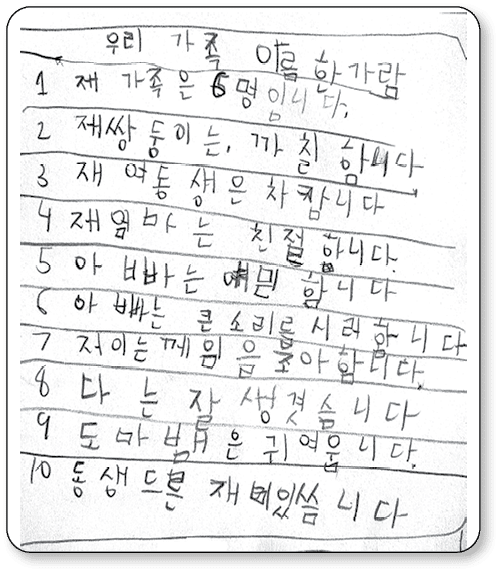 우리 가족 이름 한가람
1 제 가족은 6명입니다.
2 제쌍 둥이는, 까칠 합니다
3 재 여동 생은 차캅니다
4 재엄마는 친절합니다.
5 아 빠는 예민 합니다
6 아 빠는 큰소리를 시러합니다
7 저이는께임을조아합니다.
8 다는 잘 생겻습니다
9 도마뱀은 귀여웁니다.
10 동생드른 재미있씀니다